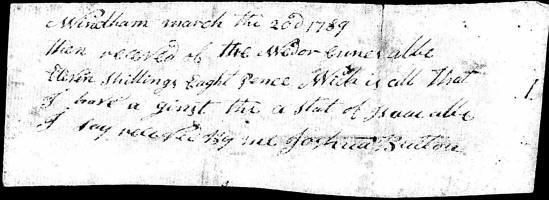 Windham march the 20d 1789
then receved of the Wedor eunes abbe
Eleven shillings Eaght pence Which is all that
I have a ginst the a stat of Isaac abbe
I say receved By me Joshua Button